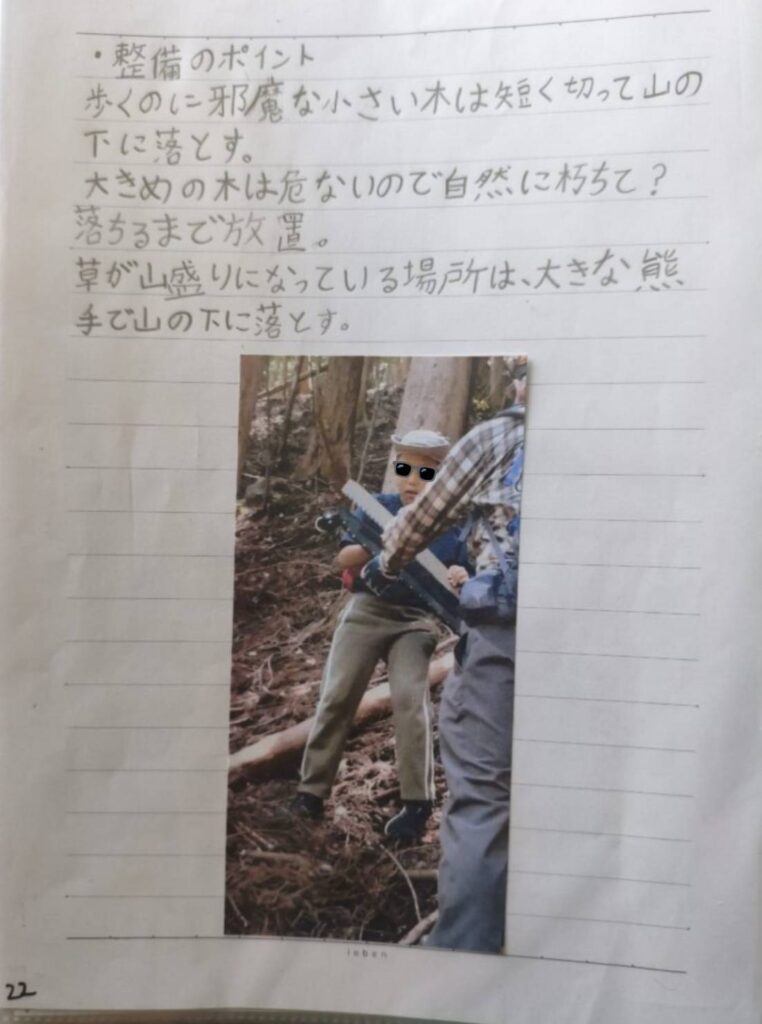 ・整備のポイント
歩くのに邪魔な小さい木は短く切って山の
下に落とす。
大きめの木は危ないので自然に朽ちて？
落ちるまで放置。
草が山盛りになっている場所は、大きな熊
手で山の下に落とす。
leben
22